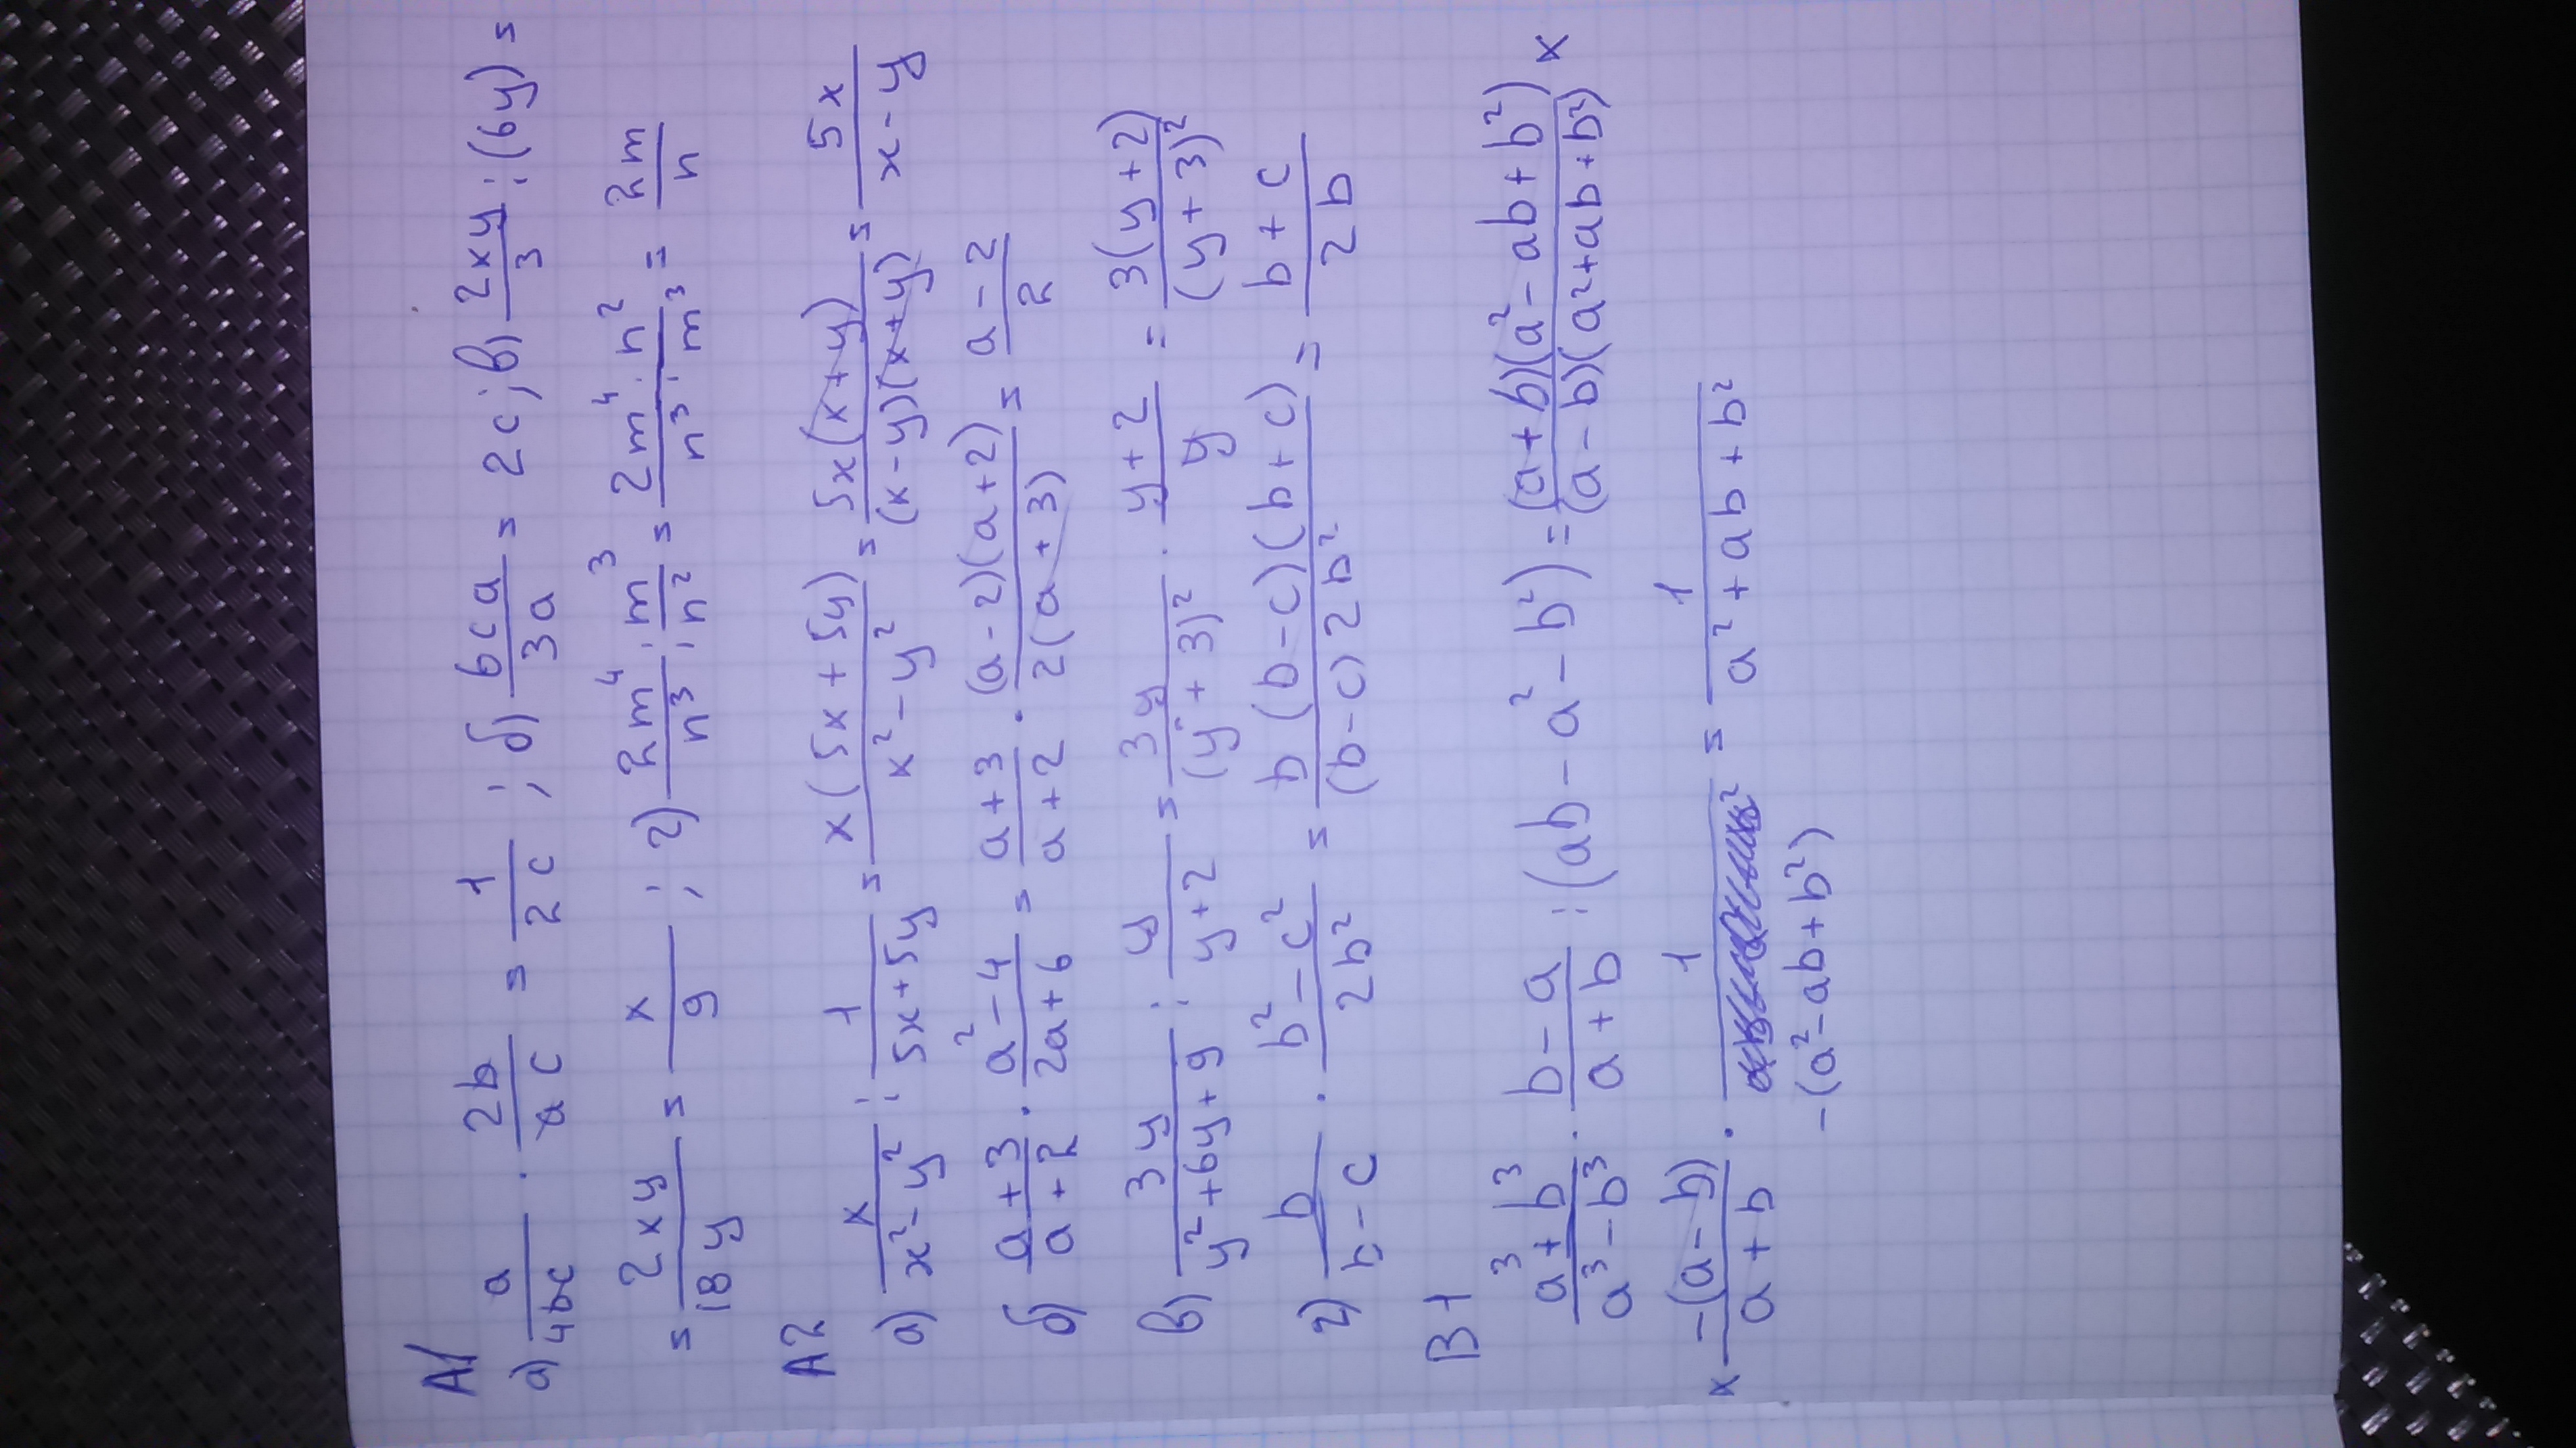 А1
а) a/4bc · 2b/ac = 1/2c ; б) 6ca/3a = 2c ; в) 2xy/3 : (6y) =
= 2xy/18y = x/9 ; г) 2m⁴/n³ : m³/n² = 2m⁴ · n²/n³ · m³ = 2m/n
А2
а) x/x²-y² : 1/5x+5y = x(5x+5y)/x²-y² = 5x(x+y)/(x-y)(x+y) = 5x/x-y
б) a+3/a+2 · a²-4/2a+6 = a+3/a+2 · (a-2)(a+2)/2(a+3) = a-2/2
в) 3y/y²+6y+9 : y/y+2 = 3y/(y+3)² · y+2/y = 3(y+2)/(y+3)²
г) b/b-c · b²-c²/2b² = b(b-c)(b+c)/(b-c)2b² = b+c/2b
В1
a³+b³/a³-b³ · b-a/a+b : (ab-a²-b²) = (a+b)(a²-ab+b²)/(a-b)(a²+ab+b²) ×
× -(a-b)/a+b · 1/-(a²-ab+b²) = 1/a²+ab+b²